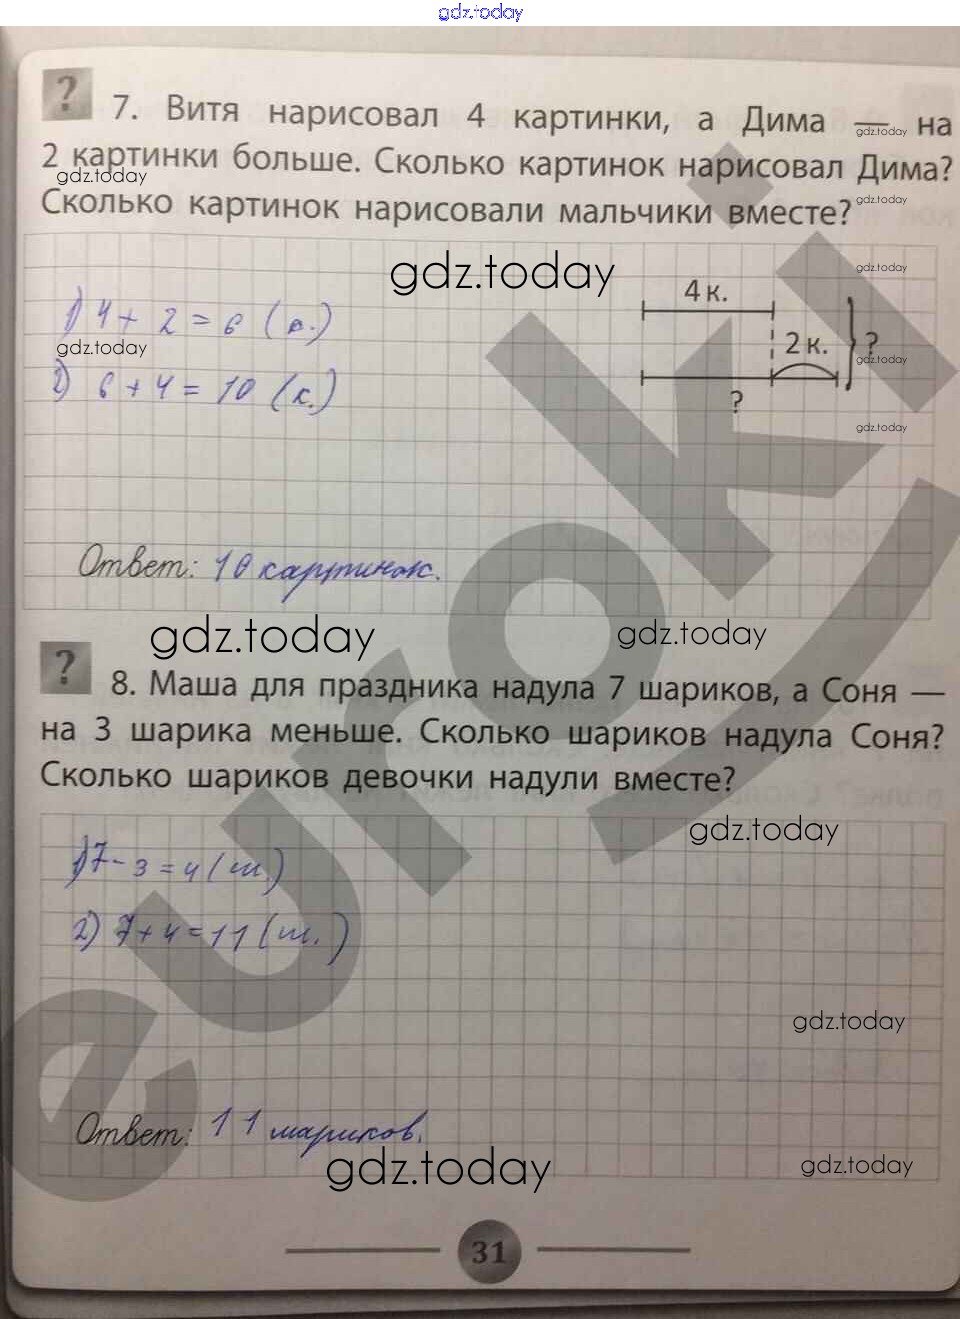 gdz.today
?
7. Витя нарисовал 4 картинки, а Дима — на
gdz.today
2 картинки больше. Сколько картинок нарисовал Дима?
gdz.today
gdz.today
Сколько картинок нарисовали мальчики вместе?
gdz.today
gdz.today
4 к.
1) 4 + 2 = 6 (к.)
2 к.
?
gdz.today
gdz.today
2) 6 + 4 = 10 (к.)
?
gdz.today
Ответ: 10 картинок.
gdz.today
gdz.today
?
8. Маша для праздника надула 7 шариков, а Соня —
на 3 шарика меньше. Сколько шариков надула Соня?
Сколько шариков девочки надули вместе?
gdz.today
1) 7 - 3 = 4 (ш.)
2) 7 + 4 = 11 (ш.)
gdz.today
Ответ: 11 шариков.
gdz.today
gdz.today
euroki
31